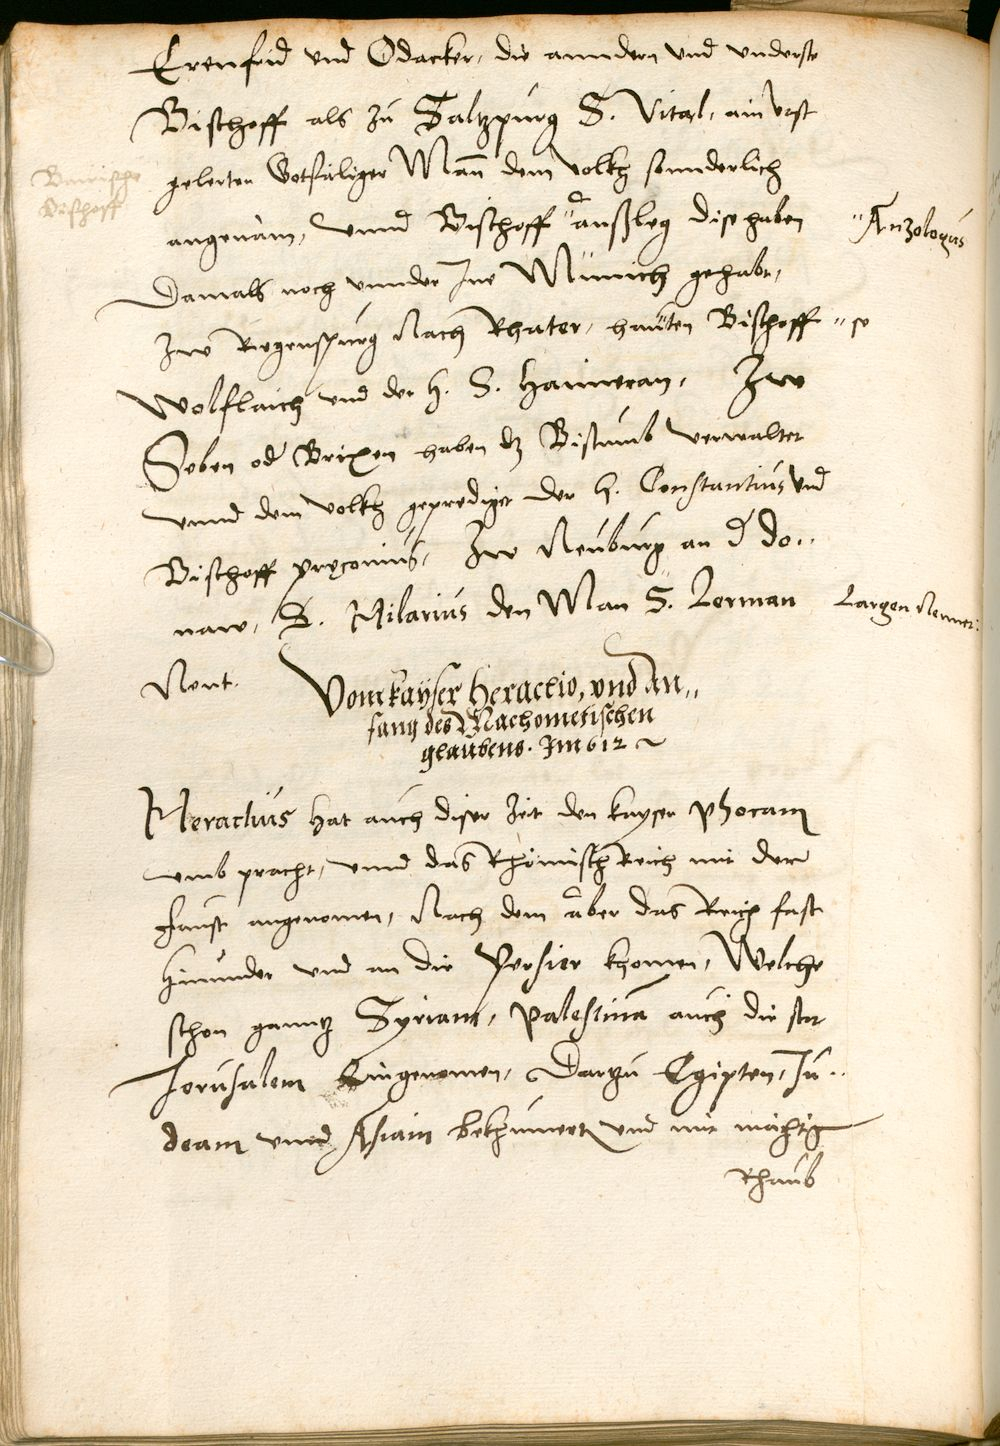 Erenfrid vnd Odacker, die anndern vnd vnderste
Bischoff als zu Saltzpurg S. Vital, ain vast
gelerter Gotsäliger Mañ dem volkh sonnderlich
Bairische
Bischoff
angenäm, vnnd Bischoff "anßleg dise haben
"Anzologus
Damals noch vnnder Ine Münich gehabt,
Zw Regenspurg Nach Rhater, hauten Bischoff
"se
Wolflaich vnd der h. S. Haimeran, Zw
Seben od Brixen haben dz Bistumb verwaltet
vnnd dem volkh geprediget der h. Constantius vnd
Bischoff preconius, Zw Neuburg an d do..
naw, S. Hilarius den Man S. Lorman
Largen Nennet:
Nent.
Vom kayser Heraclio, vnd An,,
fang des Machometischen
glaubens. Im 612 ~
Heraclius hat auch diser Zeit den kayser Phocam
vmb pracht, vnnd das Rhömisch Reich mit der
faust angenomen, Nach dem aber das Reich fast
hinunder vnd an die Persier khomen, Welche
schon ganntz Syriam, Palestina auch die stat
Jerusalem Eingenomen, Dartzu Egipten, Ju..
deam vnnd Asiam bekhumert vnd mit mächtig
Rhaub